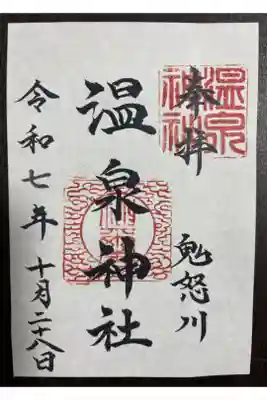 奉拝
鬼怒川
温泉神社
令和七年 十月二十八日
温泉
神社